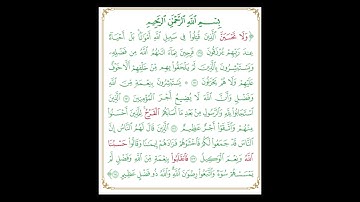 بِسْمِ اللَّهِ الرَّحْمَٰنِ الرَّحِيمِ
﴿ وَلَا تَحْسَبَنَّ الَّذِينَ قُتِلُوا فِي سَبِيلِ اللَّهِ أَمْوَاتًا بَلْ أَحْيَاءٌ
عِندَ رَبِّهِمْ يُرْزَقُونَ ۝ فَرِحِينَ بِمَا آتَاهُمُ اللَّهُ مِن فَضْلِهِ
وَيَسْتَبْشِرُونَ بِالَّذِينَ لَمْ يَلْحَقُوا بِهِم مِّنْ خَلْفِهِمْ أَلَّا خَوْفٌ
عَلَيْهِمْ وَلَا هُمْ يَحْزَنُونَ ۝ يَسْتَبْشِرُونَ بِنِعْمَةٍ مِّنَ اللَّهِ
وَفَضْلٍ وَأَنَّ اللَّهَ لَا يُضِيعُ أَجْرَ الْمُؤْمِنِينَ ۝ الَّذِينَ
اسْتَجَابُوا لِلَّهِ وَالرَّسُولِ مِن بَعْدِ مَا أَصَابَهُمُ الْقَرْحُ لِلَّذِينَ أَحْسَنُوا
مِنْهُمْ وَاتَّقَوْا أَجْرٌ عَظِيمٌ ۝ الَّذِينَ قَالَ لَهُمُ النَّاسُ إِنَّ
النَّاسَ قَدْ جَمَعُوا لَكُمْ فَاخْشَوْهُمْ فَزَادَهُمْ إِيمَانًا وَقَالُوا حَسْبُنَا
اللَّهُ وَنِعْمَ الْوَكِيلُ ۝ فَانقَلَبُوا بِنِعْمَةٍ مِّنَ اللَّهِ وَفَضْلٍ لَّمْ
يَمْسَسْهُمْ سُوءٌ وَاتَّبَعُوا رِضْوَانَ اللَّهِ وَاللَّهُ ذُو فَضْلٍ عَظِيمٍ ﴾